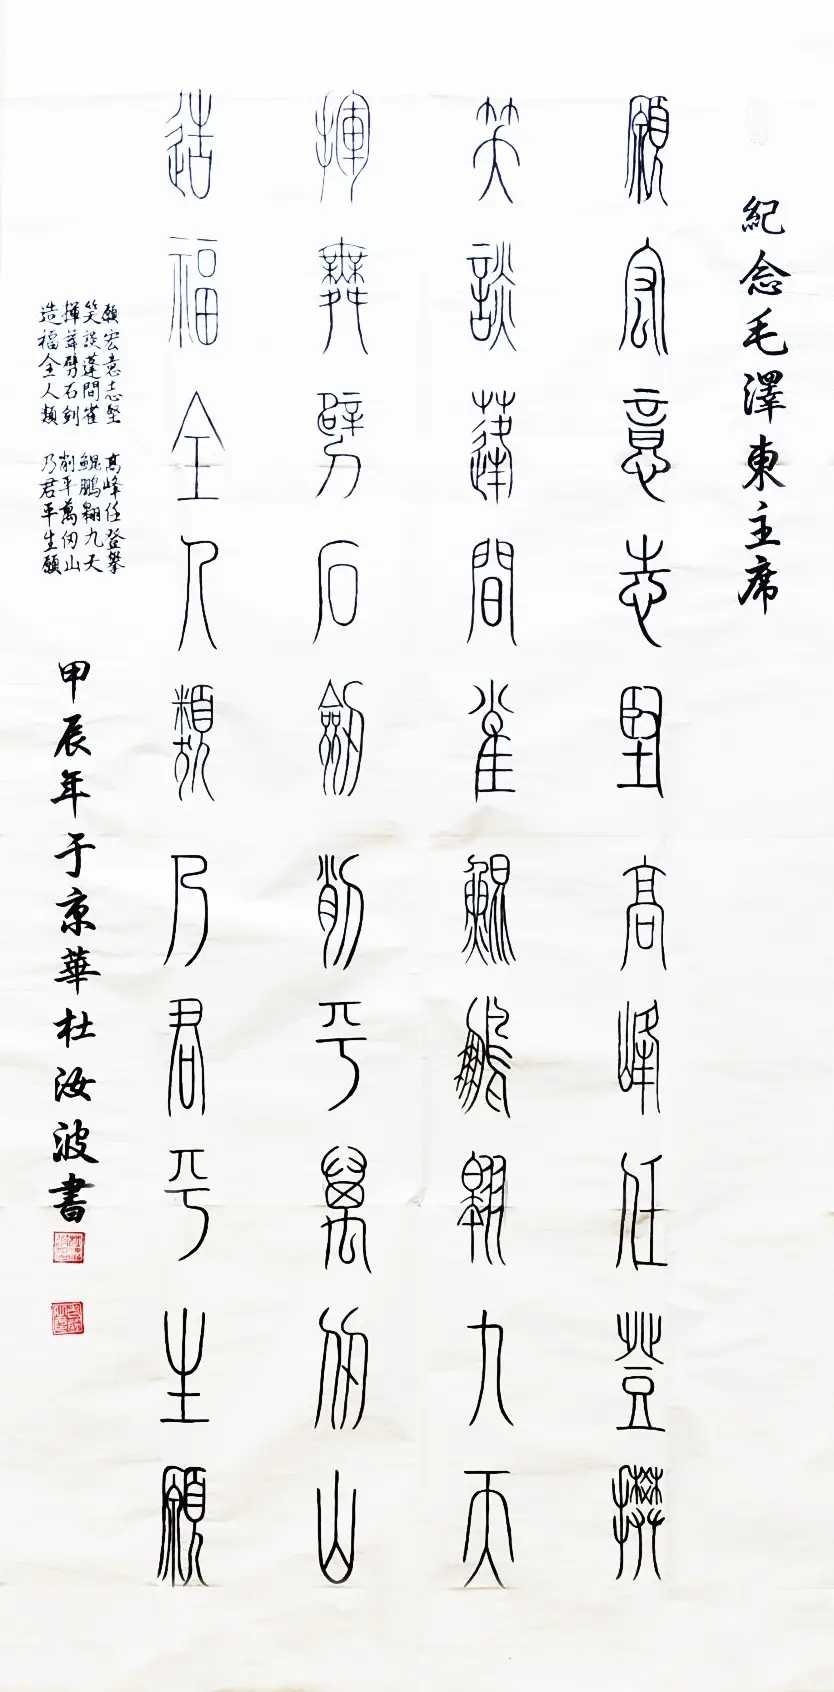 紀念毛澤東主席
願宏意志堅高峰任登攀
笑談蓬間雀鯤鵬翱九天
揮舞劈石劍削平萬仞山
造福全人類乃君平生願
願宏意志堅 高峰任登攀
笑談蓬間雀 鯤鵬翱九天
揮舞劈石劍 削平萬仞山
造福全人類 乃君平生願
甲辰年于京華杜汝波書